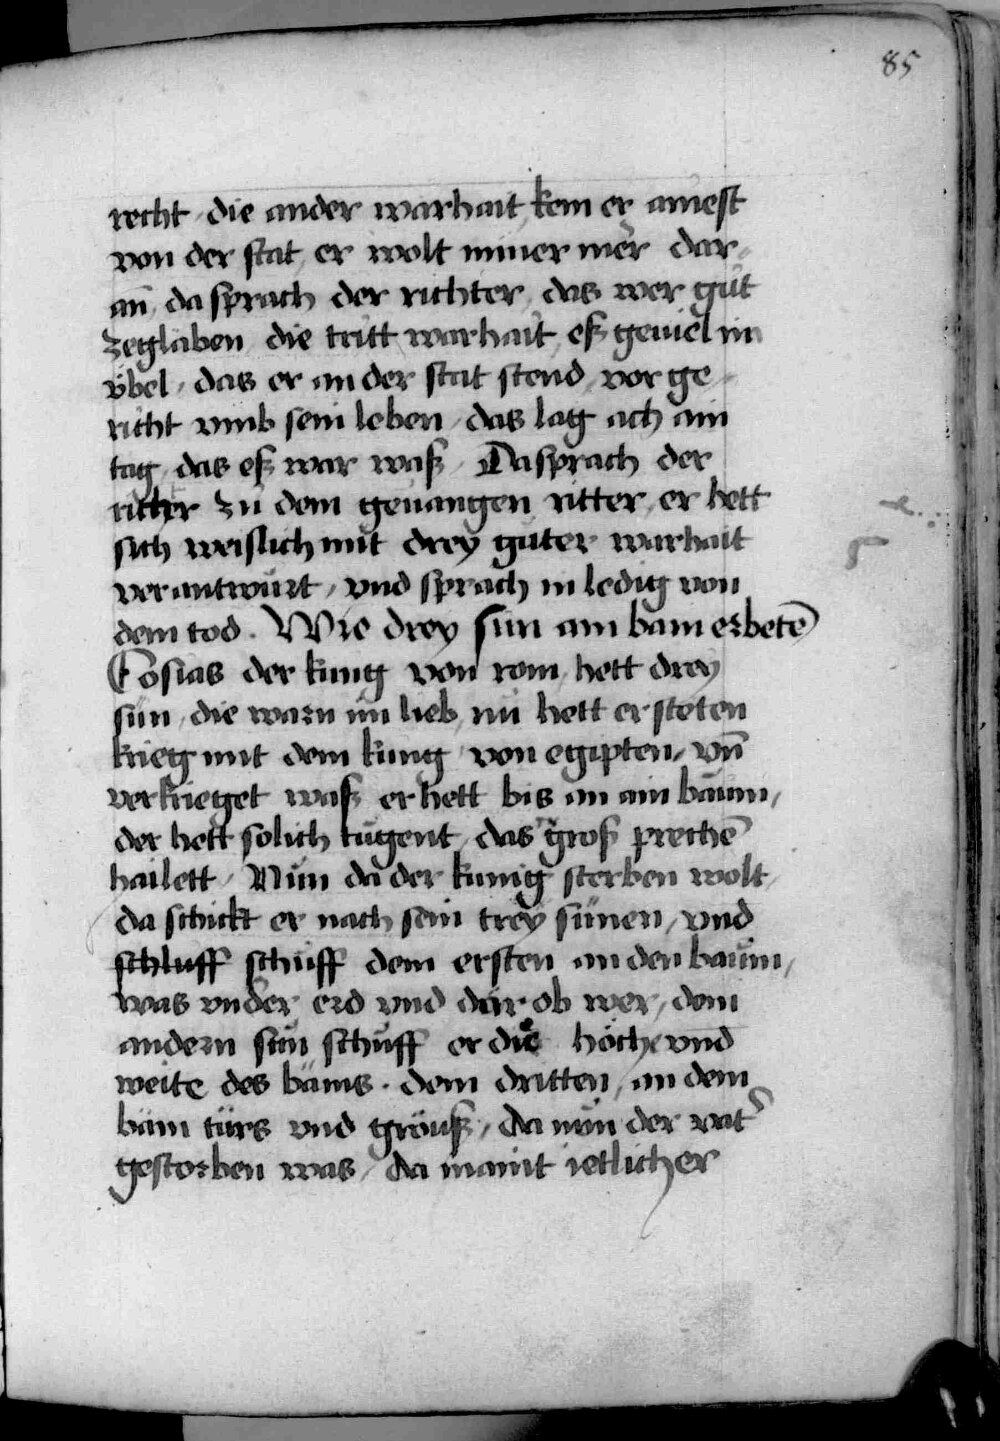 85
recht / die ander warhait / kem er ainest
von der stat / er wolt nimer mer dar
an̄ / da sprach der richter / das wer gůt
zeglaben / die tritt warhait / eß geuiel im
v̈bel / das er an der stat stend / vor ge
richt vmb sein leben / das lag ach am
tag / das eß war waß / Da sprach der
richter zů dem geuangen ritter / er hett
sich weislich mit drey guter warhait
verantwurt / vnd sprach in ledig von
dem tod . Wie drey sün ain bam erbetē
Cosias der kung von rom / hett drey
sün / die warn im lieb / nu hett er steten
krieg mit dem kung von egipten / vn̄
verkrieget waß er hett bis an ain baum /
der hett solich tugent / das groß prechē
hailett / Nun da der kunig sterben wolt /
da schickt er nach sein trey sünen / vnd
schluff schuff dem ersten an den baum /
was vnder erd vnd dar ob wer / dem
andern sun schuff er die höch vnd
weite des bäms . dem dritten / an dem
bäm türs vnd gröuß / da nun der vat
gestorben was / da maint ietlicher